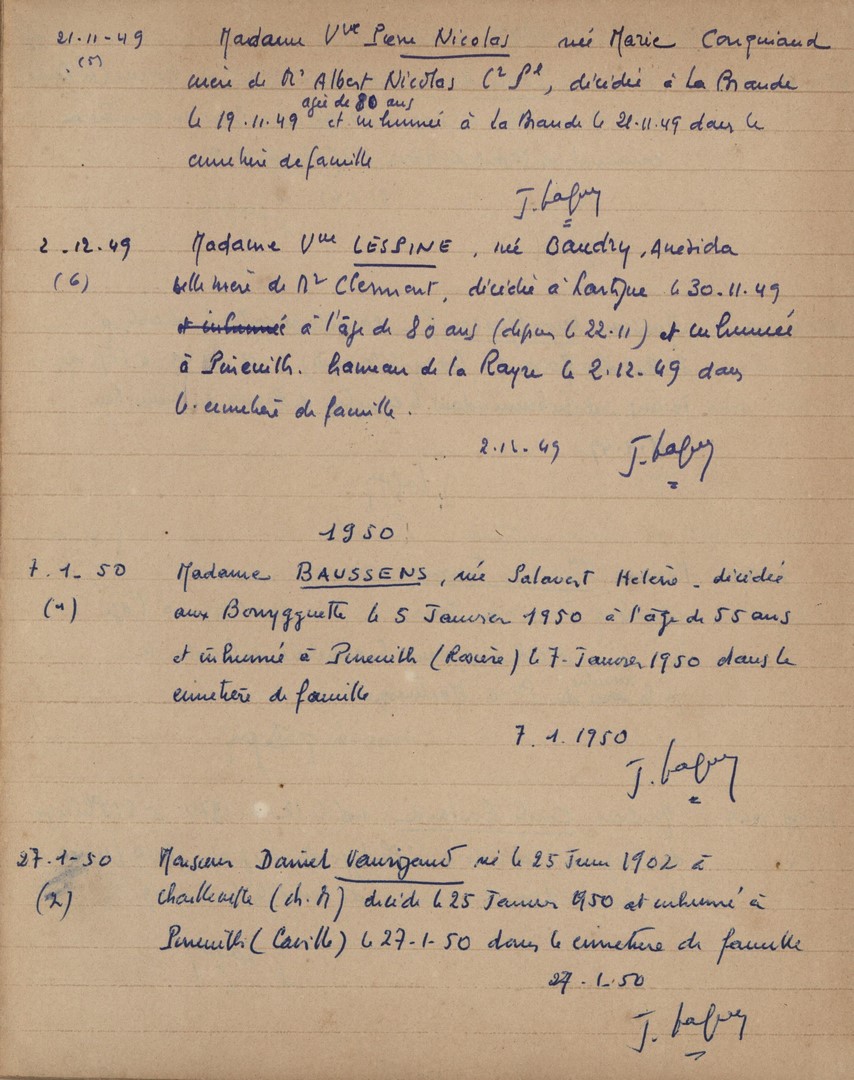 21-11-49 Madame Vve Pierre Nicolas née Marie Conquiaud
(5) mère de Mr Albert Nicolas, décédée à La Brande
agée de 80 ans
le 19.11.49 et inhumée à la Brande le 21.11.49 dans le
cimetière de famille
J. Lafon
2-12-49 Madame Vve LESPINE, née Baudry, Anésida
(6) belle mère de Mr Clermont, décédée à Lartigue le 30-11-49
et inhumée à l'âge de 80 ans (depuis le 22.11) et inhumée
à Pineuilh. hameau de la Rayre le 2.12-49 dans
le cimetière de famille.
2.12.49 J. Lafon
1950
7.1-50 Madame BAUSSENS, née Salavert Hélène - décédée
(1) aux Bouygguette le 5 Janvier 1950 à l'âge de 55 ans
et inhumée à Pineuilh (Rosière) le 7-Janvier 1950 dans le
cimetière de famille
7.1.1950
J. Lafon
27.1-50 Monsieur Daniel Vaurigaud né le 25 Juin 1902 à
(2) (ch. M) décédé le 25 Janvier 1950 et inhumé à
Pineuilh (Caville) le 27-1-50 dans le cimetière de famille
27-1-50
J. Lafon